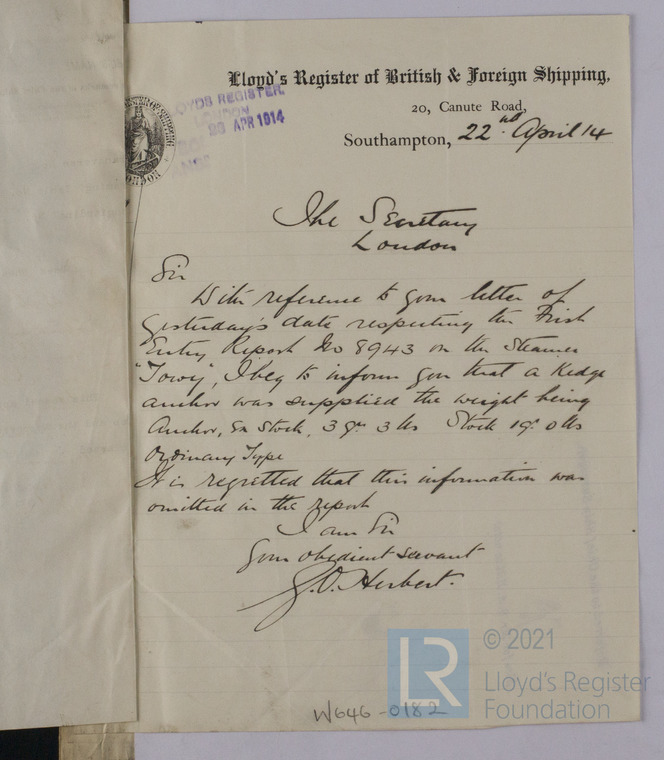 Lloyd's Register of British & Foreign Shipping,
20, Canute Road,
Southampton, 22nd April 14
LLOYDS REGISTER,
LONDON
23 APR 1914
The Secretary
London
Sir
With reference to your letter of
yesterday's date respecting the First
Entry Report No 8943 on the Steamer
"Towy", I beg to inform you that a Kedge
anchor was supplied the weight being
Anchor, Ex Stock, 3 qrs 3 lbs Stock 1 qr 0 lbs
Ordinary Type
It is regretted that this information was
omitted in the report
I am Sir
Your obedient servant
J.O. Herbert.
LR
© 2021
Lloyd's Register
Foundation
W646-0182